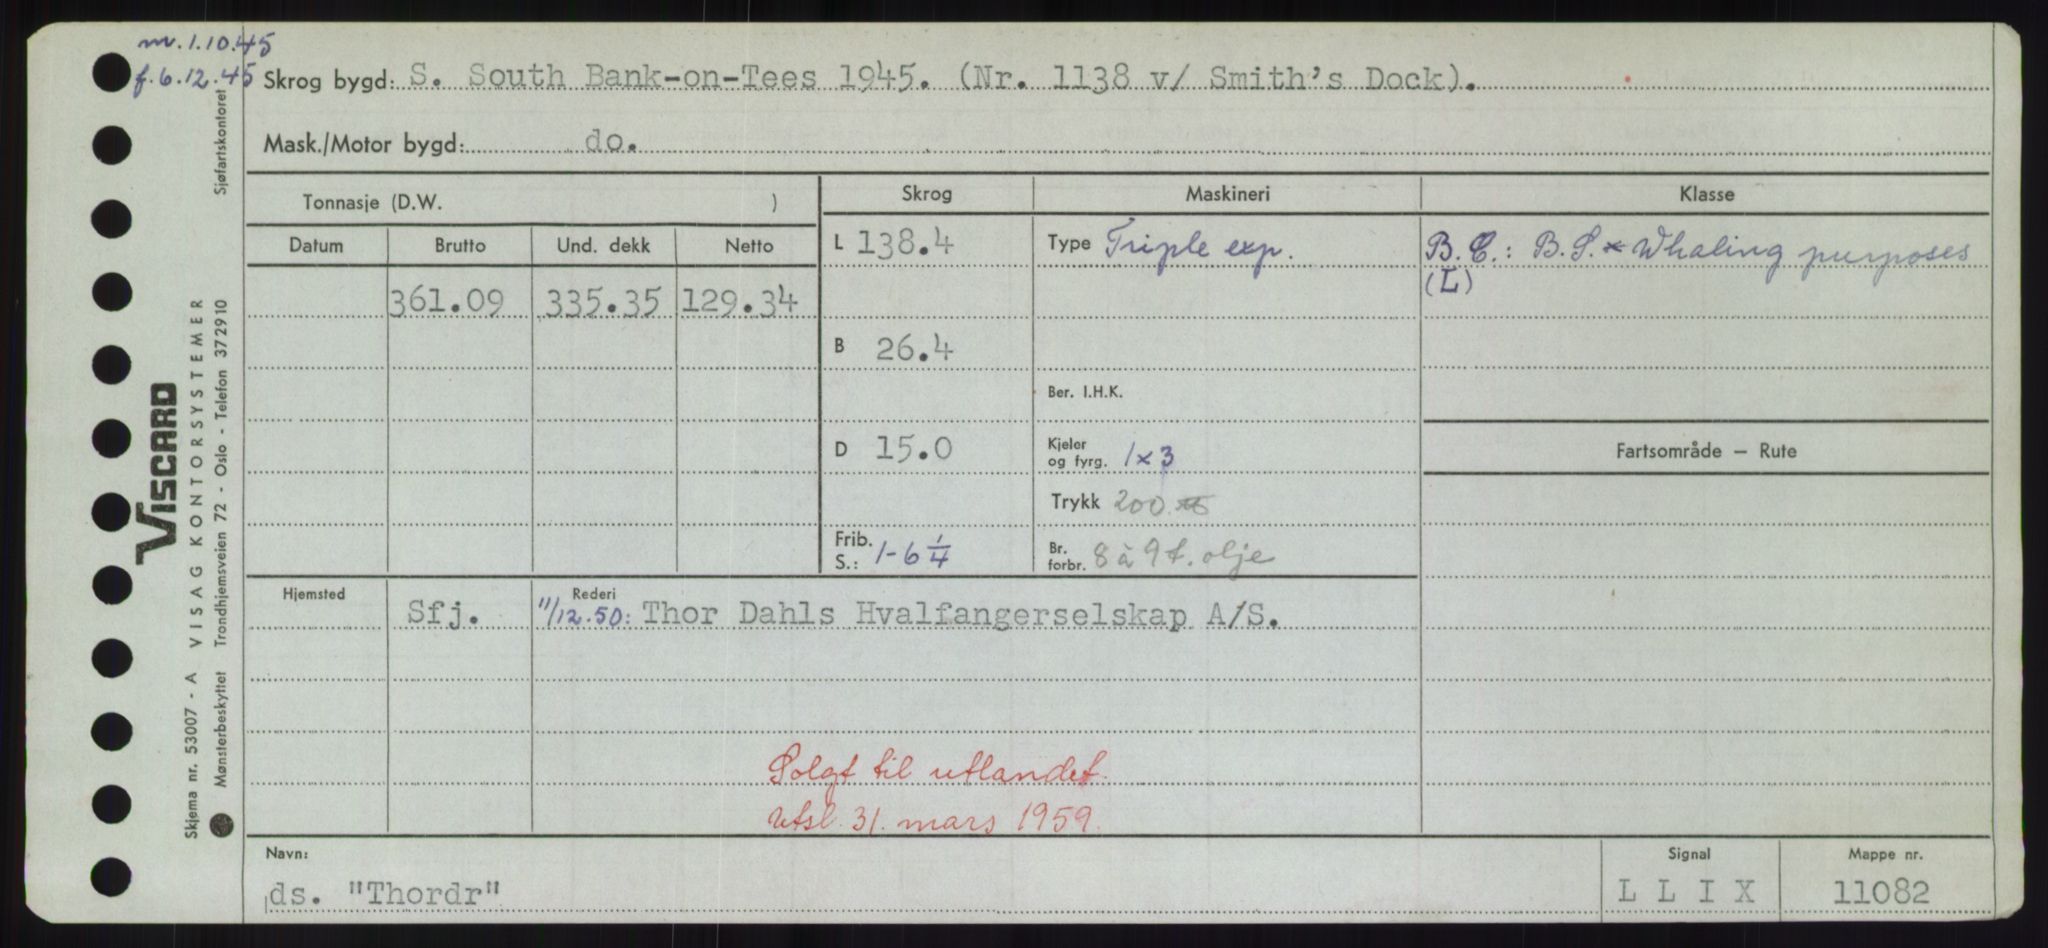 m. 1.10.45
f. 6.12.45
Skrog bygd: S. South Bank-on-Tees 1945. (Nr. 1138 v/ Smith's Dock).
Mask./Motor bygd: do.
Tonnasje (D.W. )
Skrog
Maskineri
Klasse
Datum
Brutto
Und. dekk
Netto
361.09
335.35
129.34
L 138.4
B 26.4
D 15.0
Frib. S.: 1-6 1/4
Type Triple exp.
Ber. I.H.K.
Kjeler og fyrg. 1x3
Trykk 200
Br. forbr. 8 à 9 t. olje
B.C.: B.S.* Whaling purposes
(L)
Fartsområde – Rute
Hjemsted
Rederi
Sfj.
11/12.50: Thor Dahls Hvalfangerselskap A/S.
Solgt til utlandet.
utsl. 31. mars 1959.
Navn:
ds. "Thordr"
Signal
L L I X
Mappe nr.
11082
VISCARD
Skjema nr. 53007 - A VISAG KONTORSYSTEMER
Mønsterbeskyttet Trondhjemsveien 72 - Oslo - Telefon 372910 Sjøfartskontoret